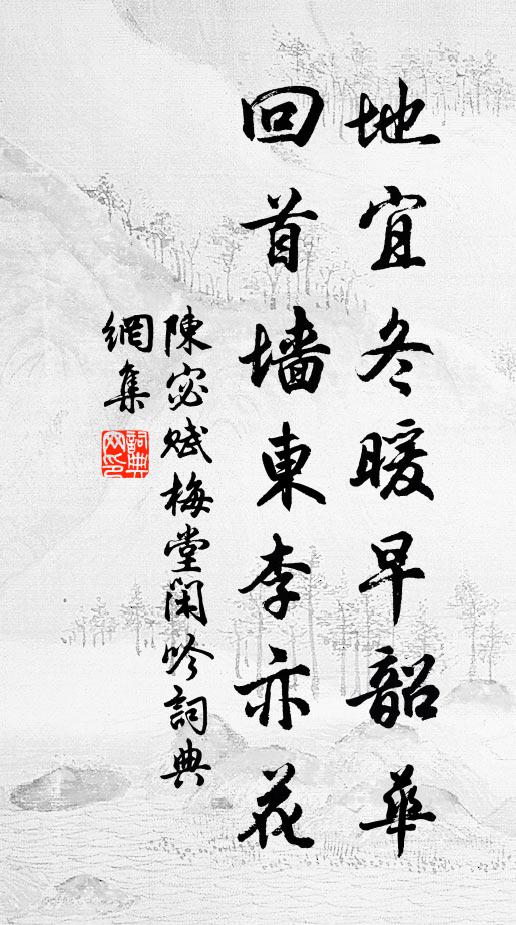 地宜冬暖早韶華
回首墻東李亦花
陳宓賦梅堂閑吟詞典
網集
詞典
网印